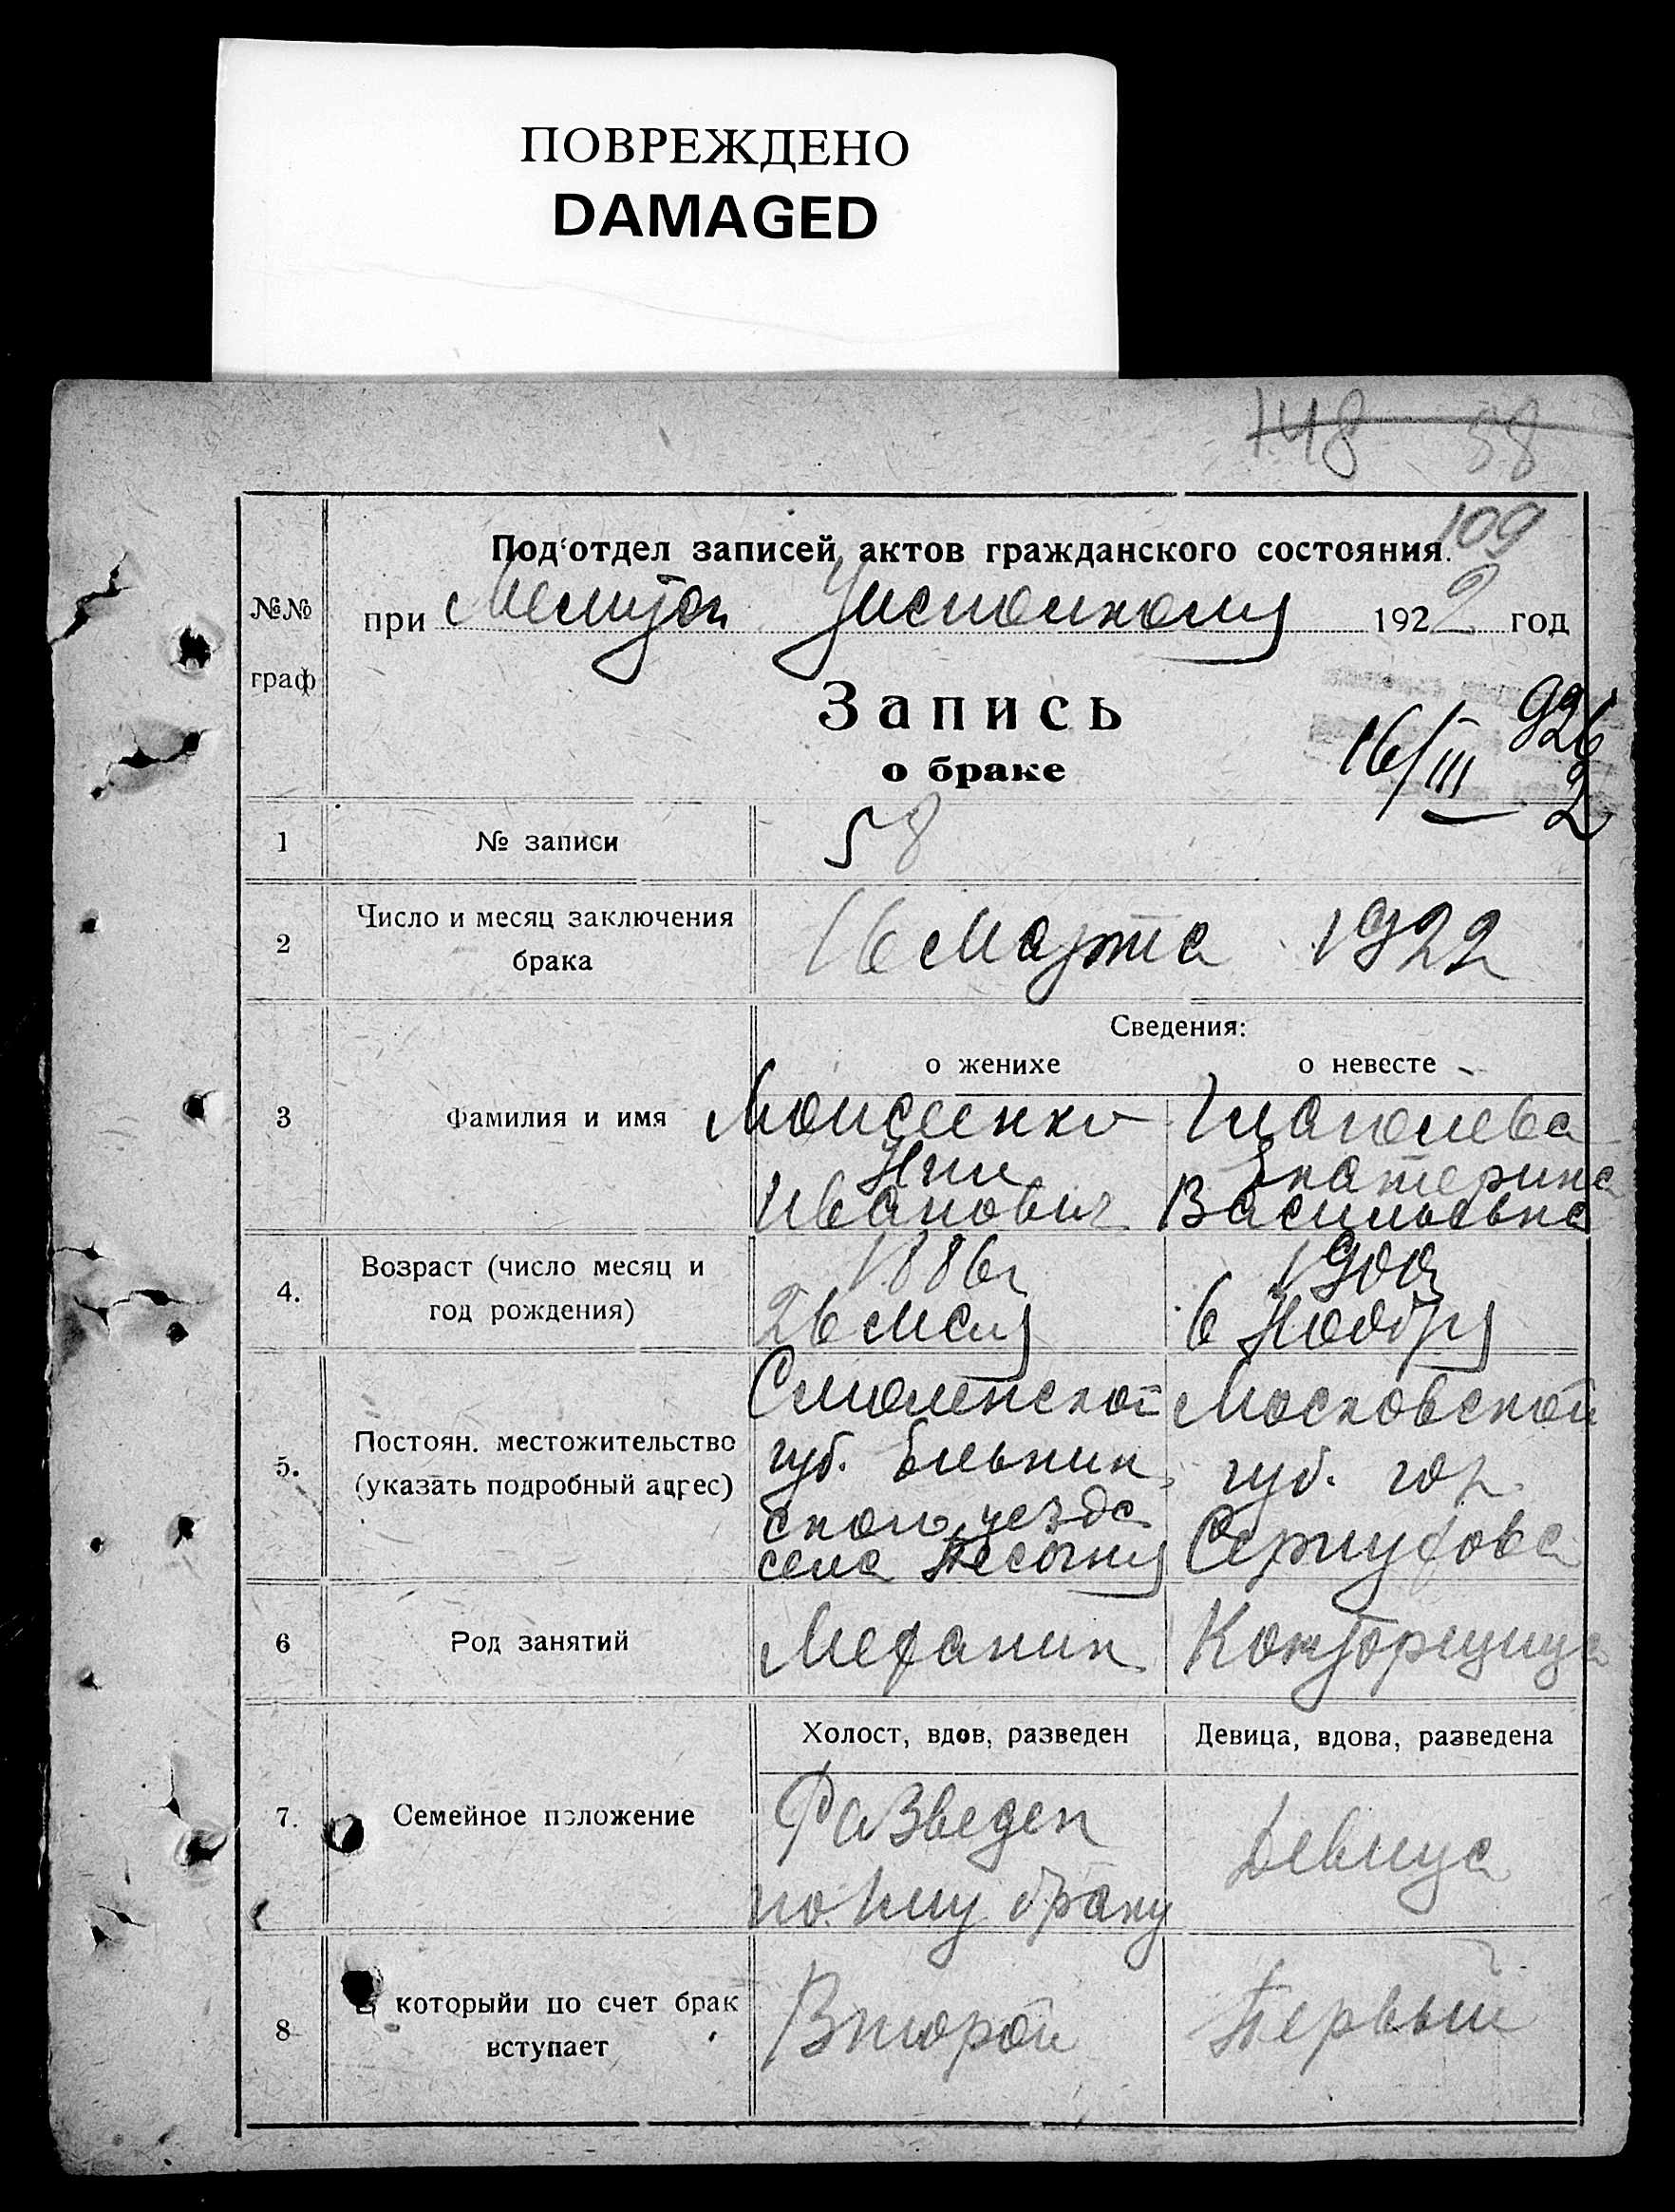 ПОВРЕЖДЕНО
DAMAGED
148 58
109
Под'отдел записей актов гражданского состояния.
№№ граф
при Уисполкома 1922 год
Запись
о браке
16/III 922
1 № записи 58
2 Число и месяц заключения брака 16 Марта 1922
Сведения:
о женихе о невесте
3 Фамилия и имя
Моисеенко Глаголева
Екатерина
Иванович Васильевна
4. Возраст (число месяц и год рождения)
1886г 1900г
26 Мая 6 Ноября
5. Постоян. местожительство (указать подробный адрес)
Смоленской Московской
губ. Ельнин губ. гор.
ского уезда Серпухова
села Песочня
6 Род занятий Механик Конторщица
Холост, вдов, разведен Девица, вдова, разведена
7. Семейное положение
Разведен Девица
по 1му браку
8 В которыйи по счет брак вступает Второй Первый